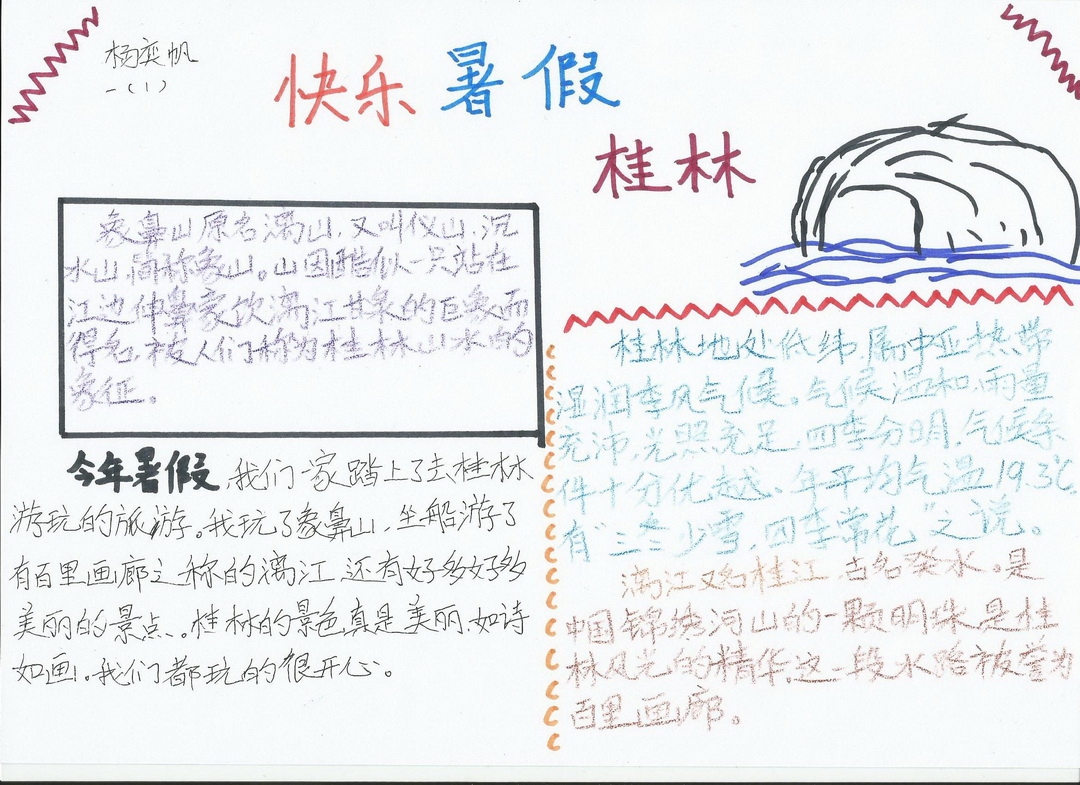 杨奕帆
一（1）
快乐暑假
桂林
象鼻山原名漓山，又叫仪山、沉
水山，简称象山。山因酷似一只站在
江边伸鼻豪饮漓江甘泉的巨象而
得名，被人们称为桂林山水的
象征。
今年暑假，我们一家踏上了去桂林
游玩的旅游。我玩了象鼻山，坐船游了
有百里画廊之称的漓江，还有好多好多
美丽的景点、。桂林的景色真是美丽，如诗
如画！。我们都玩的很开心。
桂林地处低纬，属中亚热带
湿润季风气候。气候温和，雨量
充沛，光照充足，四季分明，气候条
件十分优越。年平均气温19.3℃，
有“三冬少雪，四季常花”之说。
漓江又名桂江，古名癸水。是
中国锦绣河山的一颗明珠，是桂
林风光的精华，这一段水路被誉为
百里画廊。